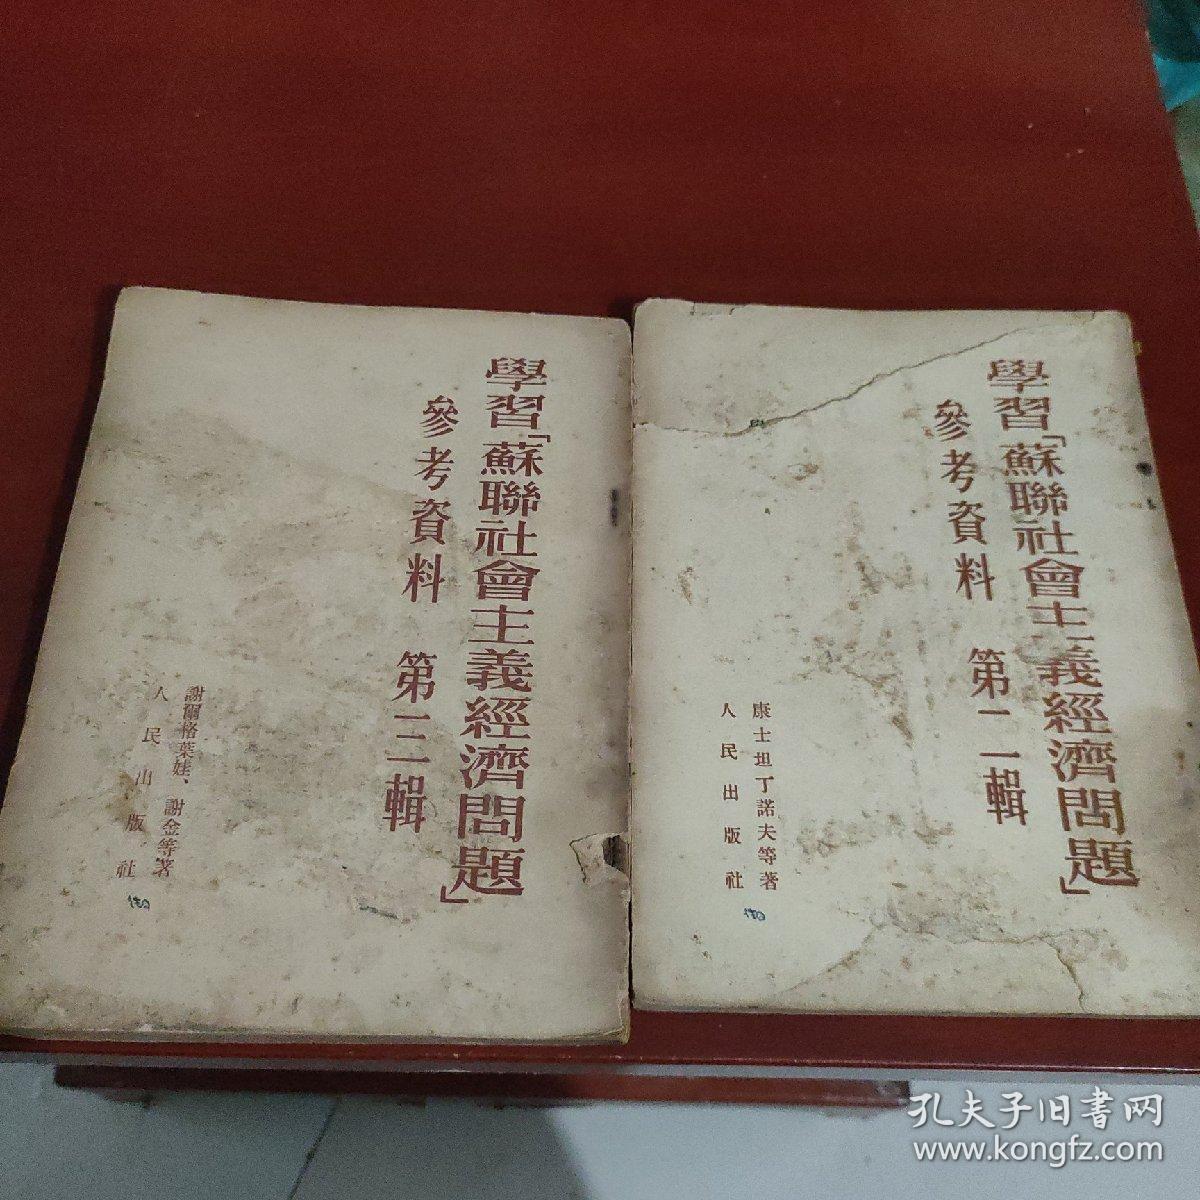 學習「蘇聯社會主義經濟問題」
參考資料 第三輯
謝爾格葉娃、謝金等著
人民出版社
學習「蘇聯社會主義經濟問題」
參考資料 第二輯
康士坦丁諾夫等著
人民出版社
孔夫子旧书网
www.kongfz.com